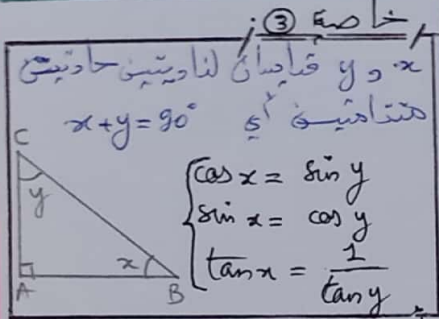 خاصة ③ :
x و y قياسان لزاويتين حادتين
متتامتين أي x+y=90°
C
y
cos x = sin y
sin x = cos y
tan x = 1/tan y
x
A B